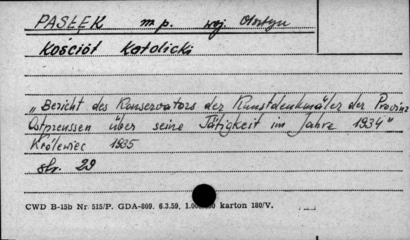 PASŁĘK m p. woj. Olsztyn
Kościół Katolicki
„Bericht des Konservators der Kunstdenkmäler der Provinz
Ostpreussen über seine Tätigkeit im Jahre 1934"
Królewiec 1935
str. 29
CWD B-15b Nr 515/P. GDA-809. 6.3.59. 1.000.000 karton 180/V.